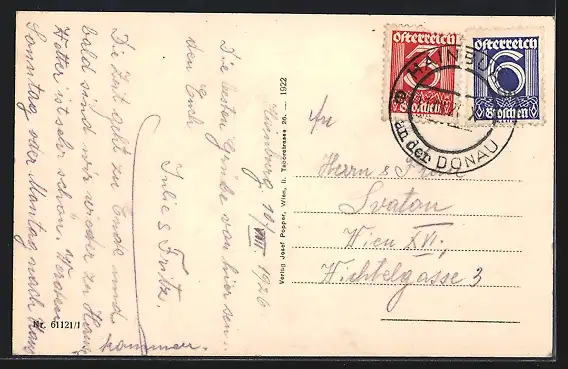 Hainburg, 10/VIII 1926
Die besten Grüße von hier sen-
den Euch
Julie & Fritz.
Die Zeit geht zu Ende und
bald sind wir wieder zu Haus
Wetter ist sehr schön. Werden
Sonntag oder Montag nach Haus
kommen.
Nr. 61121/1
Verlag Josef Popper, Wien, II. Taborstrasse 26. — 1922
Österreich
3
Groschen
Österreich
6
Groschen
HAINBURG
an der DONAU
An
Herrn &
Svaton
Wien XVI,
Wichtelgasse 3